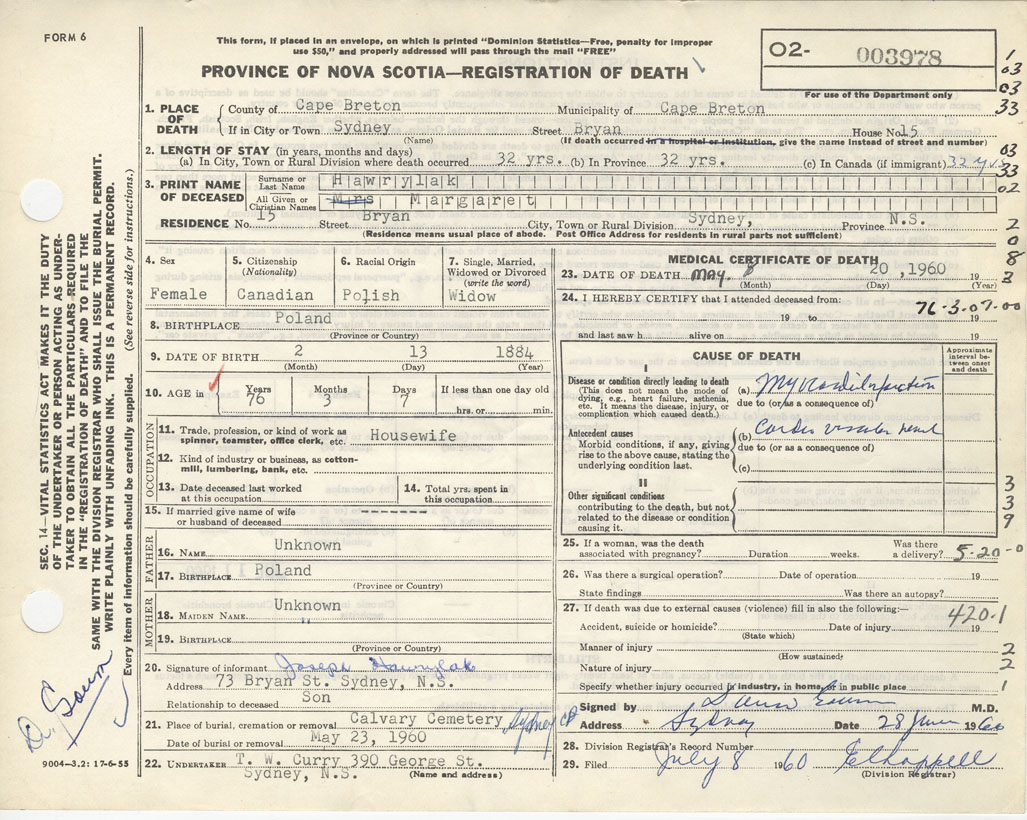 FORM 6
This form, if placed in an envelope, on which is printed "Dominion Statistics—Free, penalty for improper
use $50," and properly addressed will pass through the mail "FREE"
PROVINCE OF NOVA SCOTIA—REGISTRATION OF DEATH
O2- 003978
For use of the Department only
1. PLACE OF DEATH
County of Cape Breton Municipality of Cape Breton
If in City or Town Sydney Street Bryan House No 15
(Name) (If death occurred in a hospital or institution, give the name instead of street and number)
2. LENGTH OF STAY (in years, months and days)
(a) In City, Town or Rural Division where death occurred 32 yrs. (b) In Province 32 yrs. (c) In Canada (if immigrant) 32 yrs
3. PRINT NAME OF DECEASED
Surname or Last Name Hawrylak
All Given or Christian Names Mrs Margaret
RESIDENCE No. 15 Street Bryan City, Town or Rural Division Sydney, Province N.S.
(Residence means usual place of abode. Post Office Address for residents in rural parts not sufficient)
4. Sex Female
5. Citizenship (Nationality) Canadian
6. Racial Origin Polish
7. Single, Married, Widowed or Divorced (write the word) Widow
8. BIRTHPLACE Poland
(Province or Country)
9. DATE OF BIRTH 2 13 1884
(Month) (Day) (Year)
10. AGE in Years 76 Months 3 Days 7 If less than one day old
hrs. or min.
OCCUPATION
11. Trade, profession, or kind of work as spinner, teamster, office clerk, etc. Housewife
12. Kind of industry or business, as cotton-mill, lumbering, bank, etc.
13. Date deceased last worked at this occupation
14. Total yrs. spent in this occupation
15. If married give name of wife or husband of deceased -------
FATHER
16. NAME Unknown
17. BIRTHPLACE Poland
(Province or Country)
MOTHER
18. MAIDEN NAME Unknown
"
19. BIRTHPLACE
(Province or Country)
20. Signature of informant Joseph Hawrylak
Address 73 Bryan St. Sydney, N.S.
Relationship to deceased Son
21. Place of burial, cremation or removal Calvary Cemetery Sydney CB
Date of burial or removal May 23, 1960
22. UNDERTAKER T. W. Curry 390 George St.
Sydney, N.S. (Name and address)
MEDICAL CERTIFICATE OF DEATH
23. DATE OF DEATH MAY. 20 , 1960 19
(Month) (Day) (Year)
24. I HEREBY CERTIFY that I attended deceased from:
76-3-07-00
19 to 19
and last saw h alive on 19
CAUSE OF DEATH
Approximate interval between onset and death
I
Disease or condition directly leading to death
(This does not mean the mode of dying, e.g., heart failure, asthenia, etc. It means the disease, injury, or complication which caused death.)
(a)
due to (or as a consequence of)
Antecedent causes
Morbid conditions, if any, giving rise to the above cause, stating the underlying condition last.
(b)
due to (or as a consequence of)
(c)
II
Other significant conditions
contributing to the death, but not related to the disease or condition causing it.
25. If a woman, was the death associated with pregnancy? Duration weeks. Was there a delivery? 5-20-0
26. Was there a surgical operation? Date of operation 19
State findings Was there an autopsy?
27. If death was due to external causes (violence) fill in also the following:—
420.1
Accident, suicide or homicide? Date of injury 19
(State which)
Manner of injury
(How sustained)
Nature of injury
Specify whether injury occurred in industry, in home, or in public place
Signed by M.D.
Address Sydney Date 28 June 1960
28. Division Registrar's Record Number
29. Filed July 8 1960 E Chappell
(Division Registrar)
1
03
03
33
03
33
02
2
0
8
2
3
3
9
2
2
1
SEC. 14—VITAL STATISTICS ACT MAKES IT THE DUTY
OF THE UNDERTAKER OR PERSON ACTING AS UNDER-
TAKER TO OBTAIN ALL THE PARTICULARS REQUIRED
IN THE "REGISTRATION OF DEATH" AND TO FILE THE
SAME WITH THE DIVISION REGISTRAR WHO SHALL ISSUE THE BURIAL PERMIT.
WRITE PLAINLY WITH UNFADING INK. THIS IS A PERMANENT RECORD.
Every item of information should be carefully supplied. (See reverse side for instructions.)
9004—3.2: 17-6-55